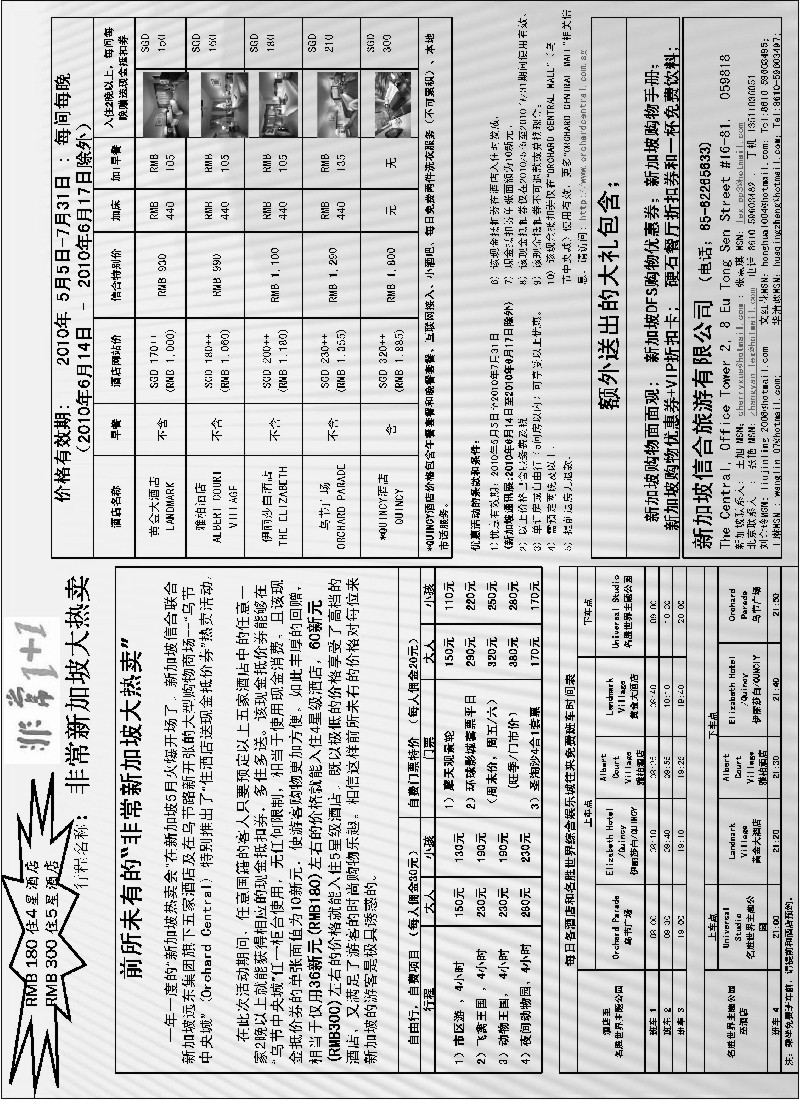 非常1+1
RMB 180 住4星酒店
RMB 300 住5星酒店
行程名称： 非常新加坡大热卖
前所未有的“非常新加坡大热卖”
一年一度的“新加坡热卖会”在新加坡5月火爆开场了，新加坡信合联合
新加坡远东集团旗下五家酒店及在乌节路新开张的大型购物商场--“乌节
中央城”（Orchard Central）特别推出了“住酒店送现金抵价券”热卖活动。
在此次活动期间，任意国籍的客人只要预定以上五家酒店中的任意一
家2晚以上就能获得相应的现金抵扣券，多住多送。该现金抵价券能够在
“乌节中央城”任一柜台使用，无任何限制，相当于使用现金消费，且该现
金抵价券的单张面值为10新元，使游客购物更加方便。如此丰厚的回赠，
相当于仅用36新元(RMB180)左右的价格就能入住4星级酒店，60新元
(RMB300)左右的价格就能入住5星级酒店，既以极低的价格享受了高档的
酒店，又满足了游客的时尚购物乐趣。相信这样前所未有的价格对每位来
新加坡的游客是极具诱惑的。
自由行，自费项目 （每人佣金30元）
行程 大人 小孩
1）市区游 ，4小时 150元 130元
2）飞禽王国 ，4小时 230元 190元
3）动物王国，4小时 230元 190元
4）夜间动物园，4小时 280元 230元
自费门票特价 （每人佣金20元）
门票 大人 小孩
1）摩天观景轮 150元 110元
2）环球影城套票平日 290元 220元
（周末价，周五/六） 320元 250元
（旺季/门市价） 380元 280元
3）圣淘沙4合1套票 170元 170元
每日各酒店和名胜世界综合娱乐城往来免费班车时间表
酒店至
名胜世界主题公园
上车点 下车点
Orchard Parade
乌节广场
Elizabeth Hotel
/Quincy
伊丽莎白/QUINCY
Albert
Court
Village
雅柏酒店
Landmark
Village
黄金大酒店
Universal Studio
名胜世界主题公园
班车 1 09:00 09:10 09:25 09:40 09:00
班车 2 09:30 09:40 09:55 10:10 10:30
班车 3 19:00 19:10 19:25 19:40 20:00
名胜世界主题公园
至酒店
上车点 下车点
Universal
Studio
名胜世界主题公
园
Landmark
Village
黄金大酒店
Albert
Court
Village
雅柏酒店
Elizabeth Hotel
/Quincy
伊丽莎白/QUINCY
Orchard
Parade
乌节广场
班车 4 21:00 21:20 21:30 21:40 21:50
注：乘坐免费班车前，请提前和酒店预约。
价格有效期： 2010年 5月5日-7月31日 ：每间每晚
（2010年6月14日 - 2010年6月17日除外）
酒店名称 早餐 酒店网站价 信合特别价 加床 加1早餐 入住2晚以上，每间每
晚赠送现金抵扣券
黄金大酒店
LANDMARK 不含 SGD 170++
(RMB 1,000) RMB 930 RMB
440 RMB
105 SGD
150
雅柏酒店
ALBERT COURT
VILLAGE 不含 SGD 180++
(RMB 1,060) RMB 990 RMB
440 RMB
105 SGD
160
伊丽莎白酒店
THE ELIZABETH 不含 SGD 200++
(RMB 1,180) RMB 1,100 RMB
440 RMB
105 SGD
180
乌节广场
ORCHARD PARADE 不含 SGD 230++
(RMB 1,355) RMB 1,290 RMB
440 RMB
135 SGD
210
*QUINCY酒店
QUINCY 含 SGD 320++
(RMB 1,885) RMB 1,800 无 无 SGD
300
*QUINCY酒店价格包含午餐套餐和晚餐套餐、互联网接入、小酒吧、每日免费两件洗衣服务（不可累积）、本地
市话服务。
优惠活动的条款和条件：
1）优惠有效期：2010年5月5日至2010年7月31日
（新加坡通讯展：2010年6月14日至2010年6月17日除外）
2）以上价格已含服务费及税
3）单订房或自由行
4）需预定两晚及以上。
5）提前退房无退款。
6）该现金抵扣券在酒店入住时发放。
7）现金抵扣券单张面额为10新元。
9）该现金抵扣券不可退款或兑换现金。
10）该现金抵扣券仅在“ORCHARD CENTRAL MALL”（乌
节中央城）使用有效，更多“ORCHARD CENTRAL MALL”相关信
息，请访问：http://www.orchardcentral.com.sg
额外送出的大礼包含；
新加坡购物面面观； 新加坡DFS购物优惠券；新加坡购物手册；
新加坡购物优惠券+VIP折扣卡； 硬石餐厅折扣券和一杯免费饮料；
新加坡信合旅游有限公司 （电话；65-62265633）
The Central, Office Tower 2, 8 Eu Tong Sen Street #16-81, 059818